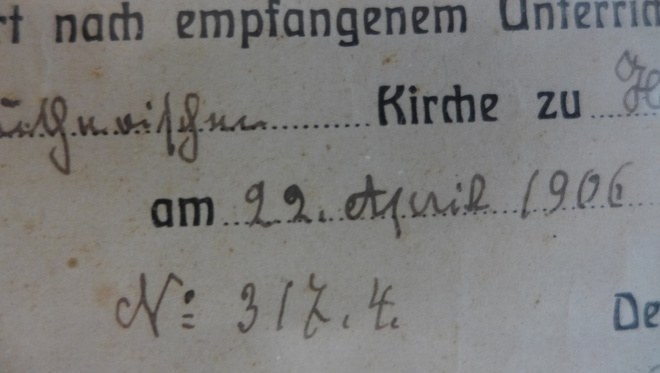 rt nach empfangenem Unterric
Kirche zu
am 22. April 1906
No: 317. 4.
De